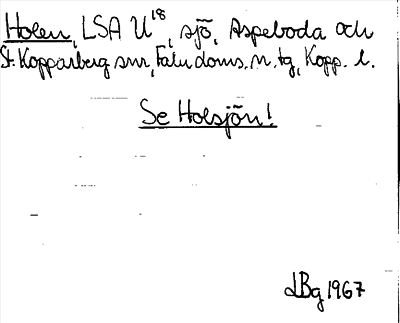 Holen, LSA U18, sjö, Aspeboda och
St. Kopparberg snr, Falu doms. n. tg, Kopp. l.
Se Holsjön!
LBg 1967